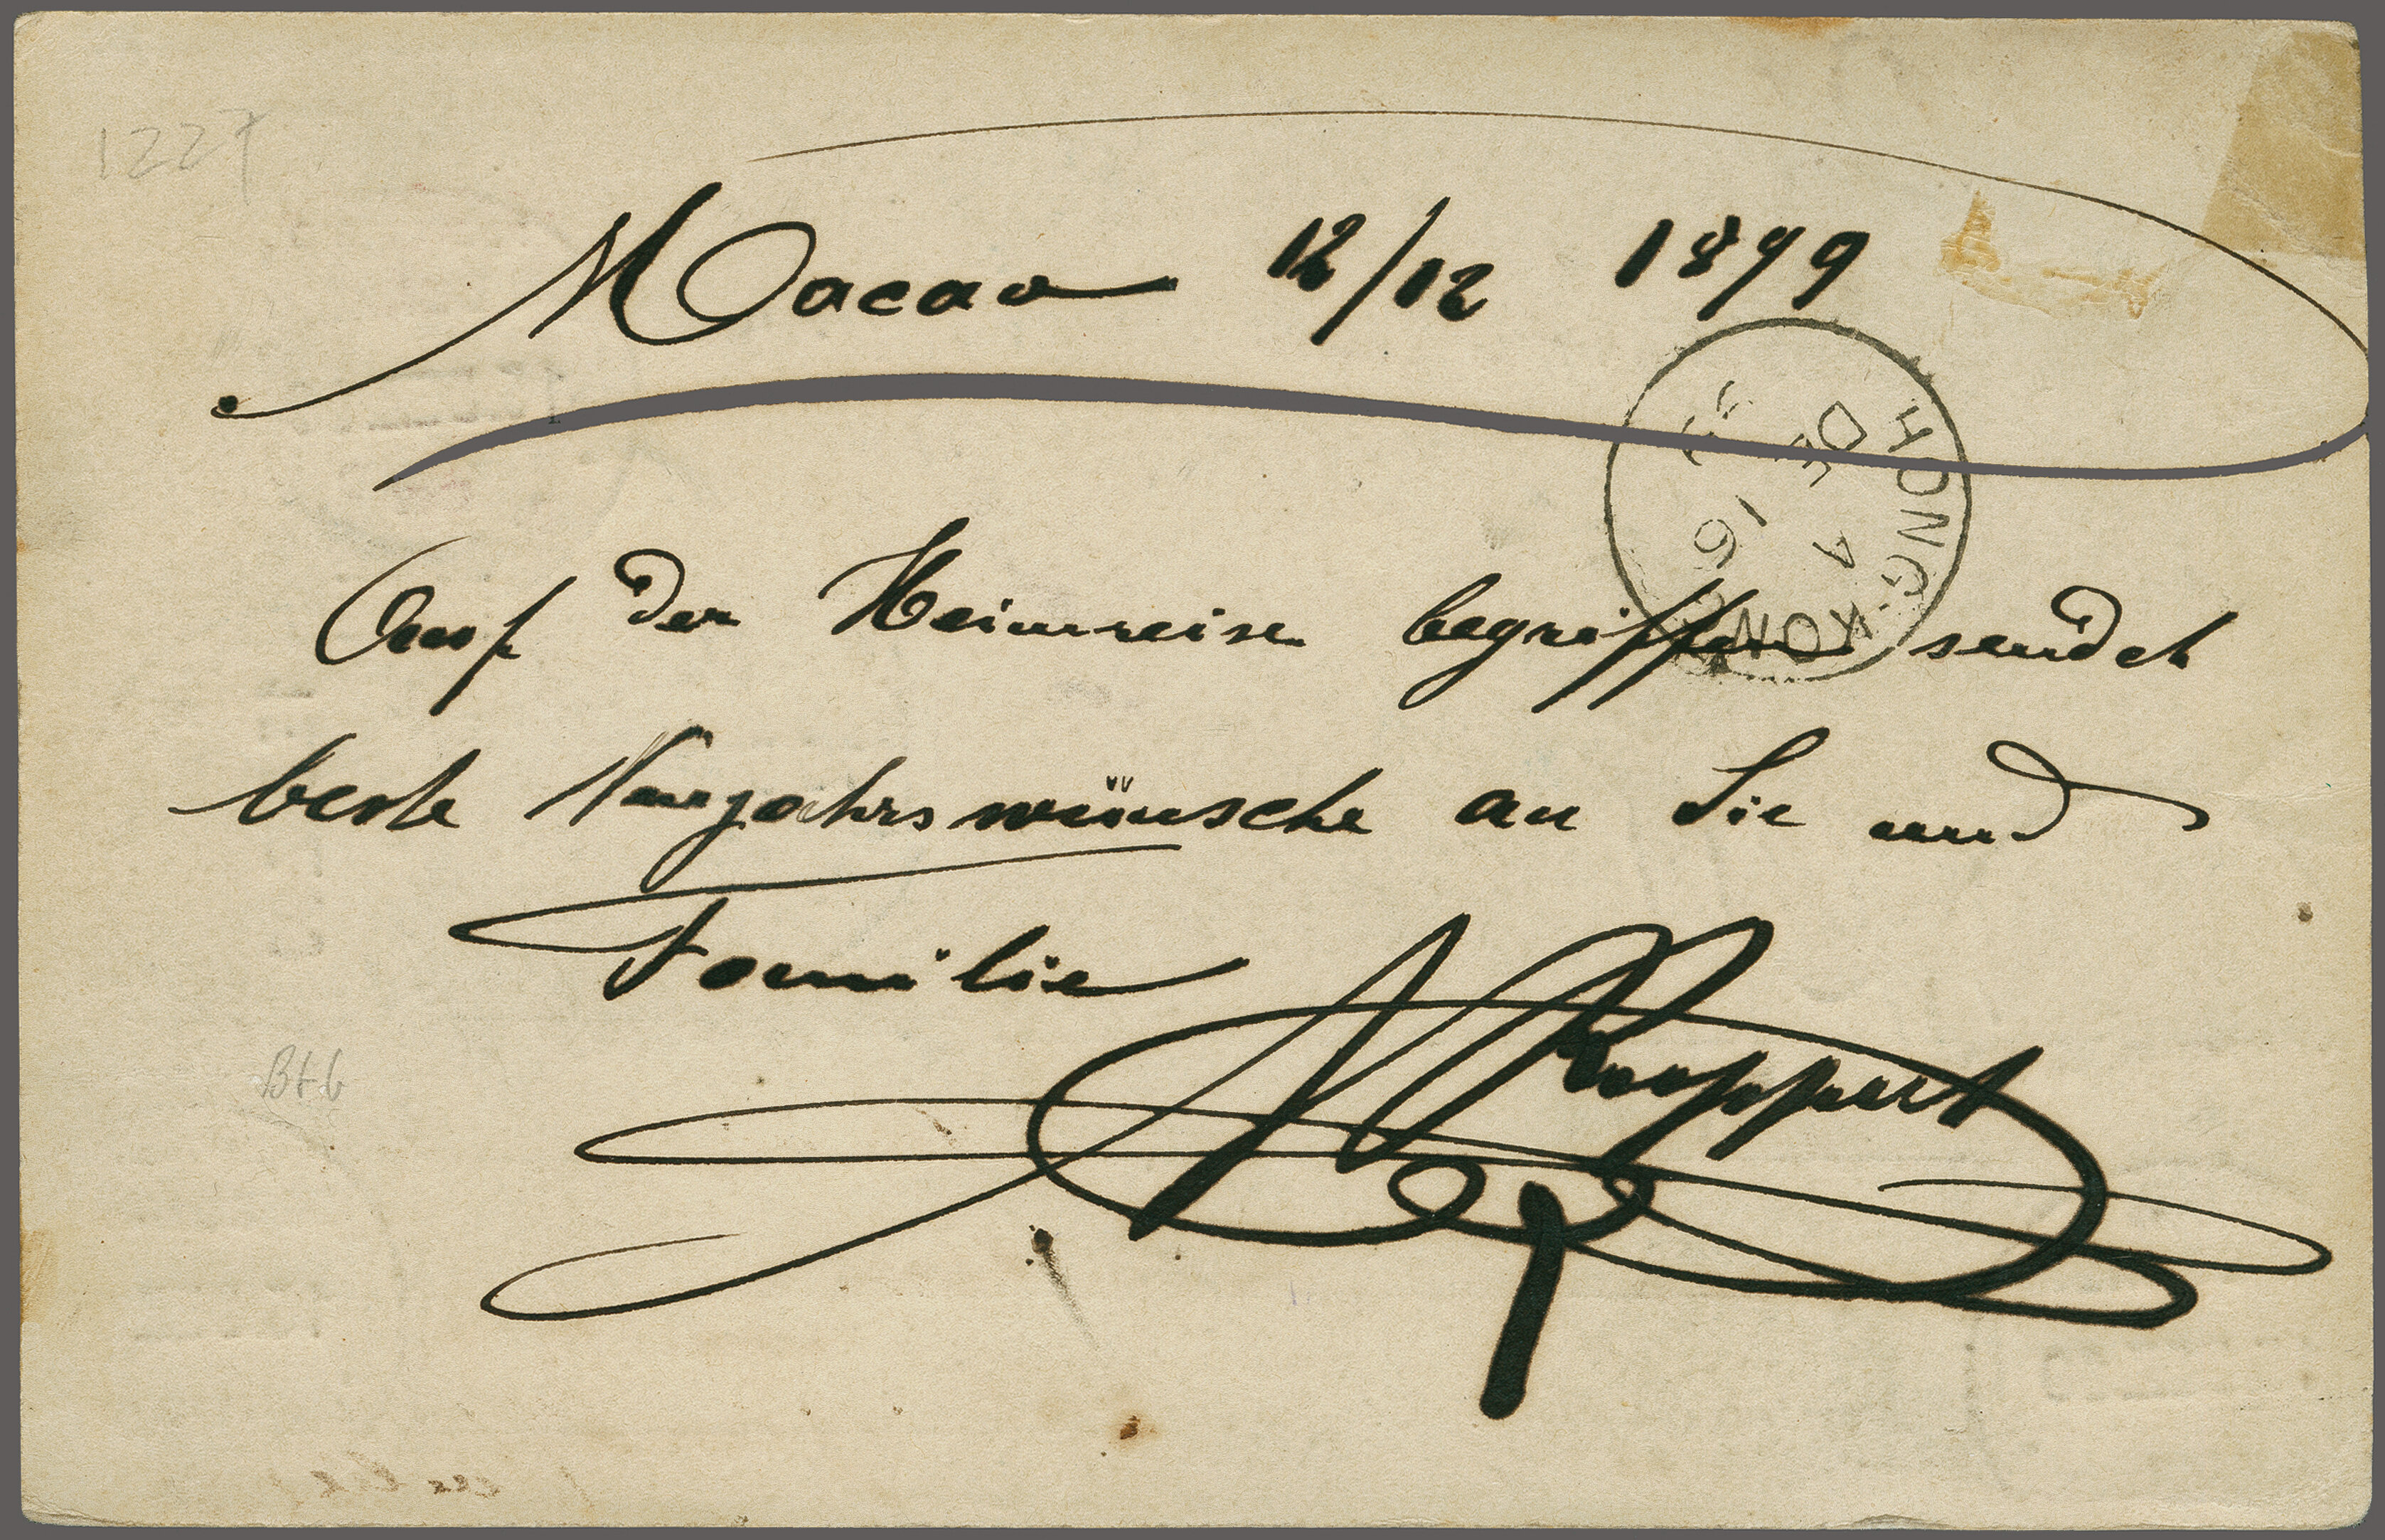 1227
Macao 12/12 1899
HONG KONG
A
DE 16
99
Auf der Heimreise begriffen sendet
beste Neujahrswünsche an Sie und
Familie
Ruppert